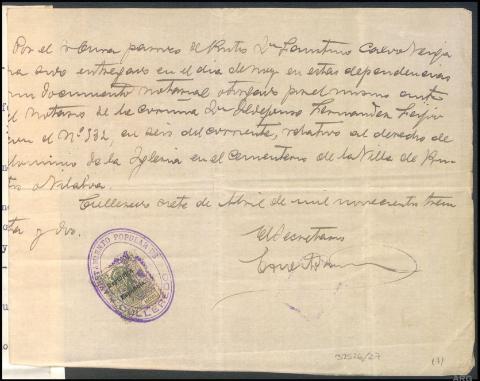 Por el Sr Cura párroco de Rutis Dn Faustino Calvo Verga
ra sido entregado en el día de hoy en estas dependencias
un documento notarial otorgado por el mismo ante
el Notario de la Coruña Dn Ildefonso Fernández Feijóo
con el Nº 532, en seis del corriente, relativo al derecho de
dominio de la Iglesia en el cementerio de la Villa de Ru
tis o Vilaboa.
Culleredo siete de Abril de mil novecientos trein
ta y dos.
El Secretario
AYUNTAMIENTO POPULAR DE CULLEREDO
32526/27
(1)
ARG